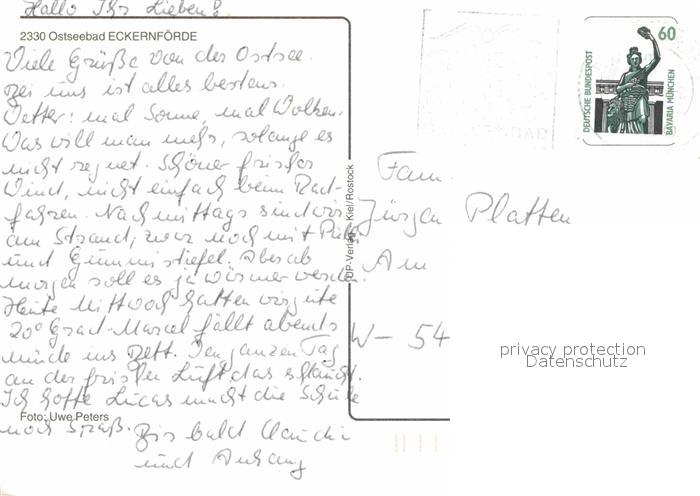 Hallo Ihr Lieben!
2330 Ostseebad ECKERNFÖRDE
Viele Grüße von der Ostsee.
Bei uns ist alles bestens.
Wetter: mal Sonne, mal Wolken.
Was will man mehr, solange es
nicht regnet. Schöner frischer
Wind, nicht einfach beim Rad-
fahren. Nachmittags sind wir
am Strand, zwar noch mit Pulli
und Gummistiefel. Aber ab
morgen soll es ja wärmer werden.
Heute Mittwoch hatten wir gute
20° Grad. Marcel fällt abends
müde ins Bett. Den ganzen Tag
an der frischen Luft das schlaucht.
Ich hoffe Lucas macht die Schule
noch Spaß.
Bis bald Claudia
und Anhang
Foto: Uwe Peters
Kiel/Rostock
DEUTSCHE BUNDESPOST
60
BAVARIA MÜNCHEN
Fam.
Jürgen Platten
Am
W- 54
privacy protection
Datenschutz